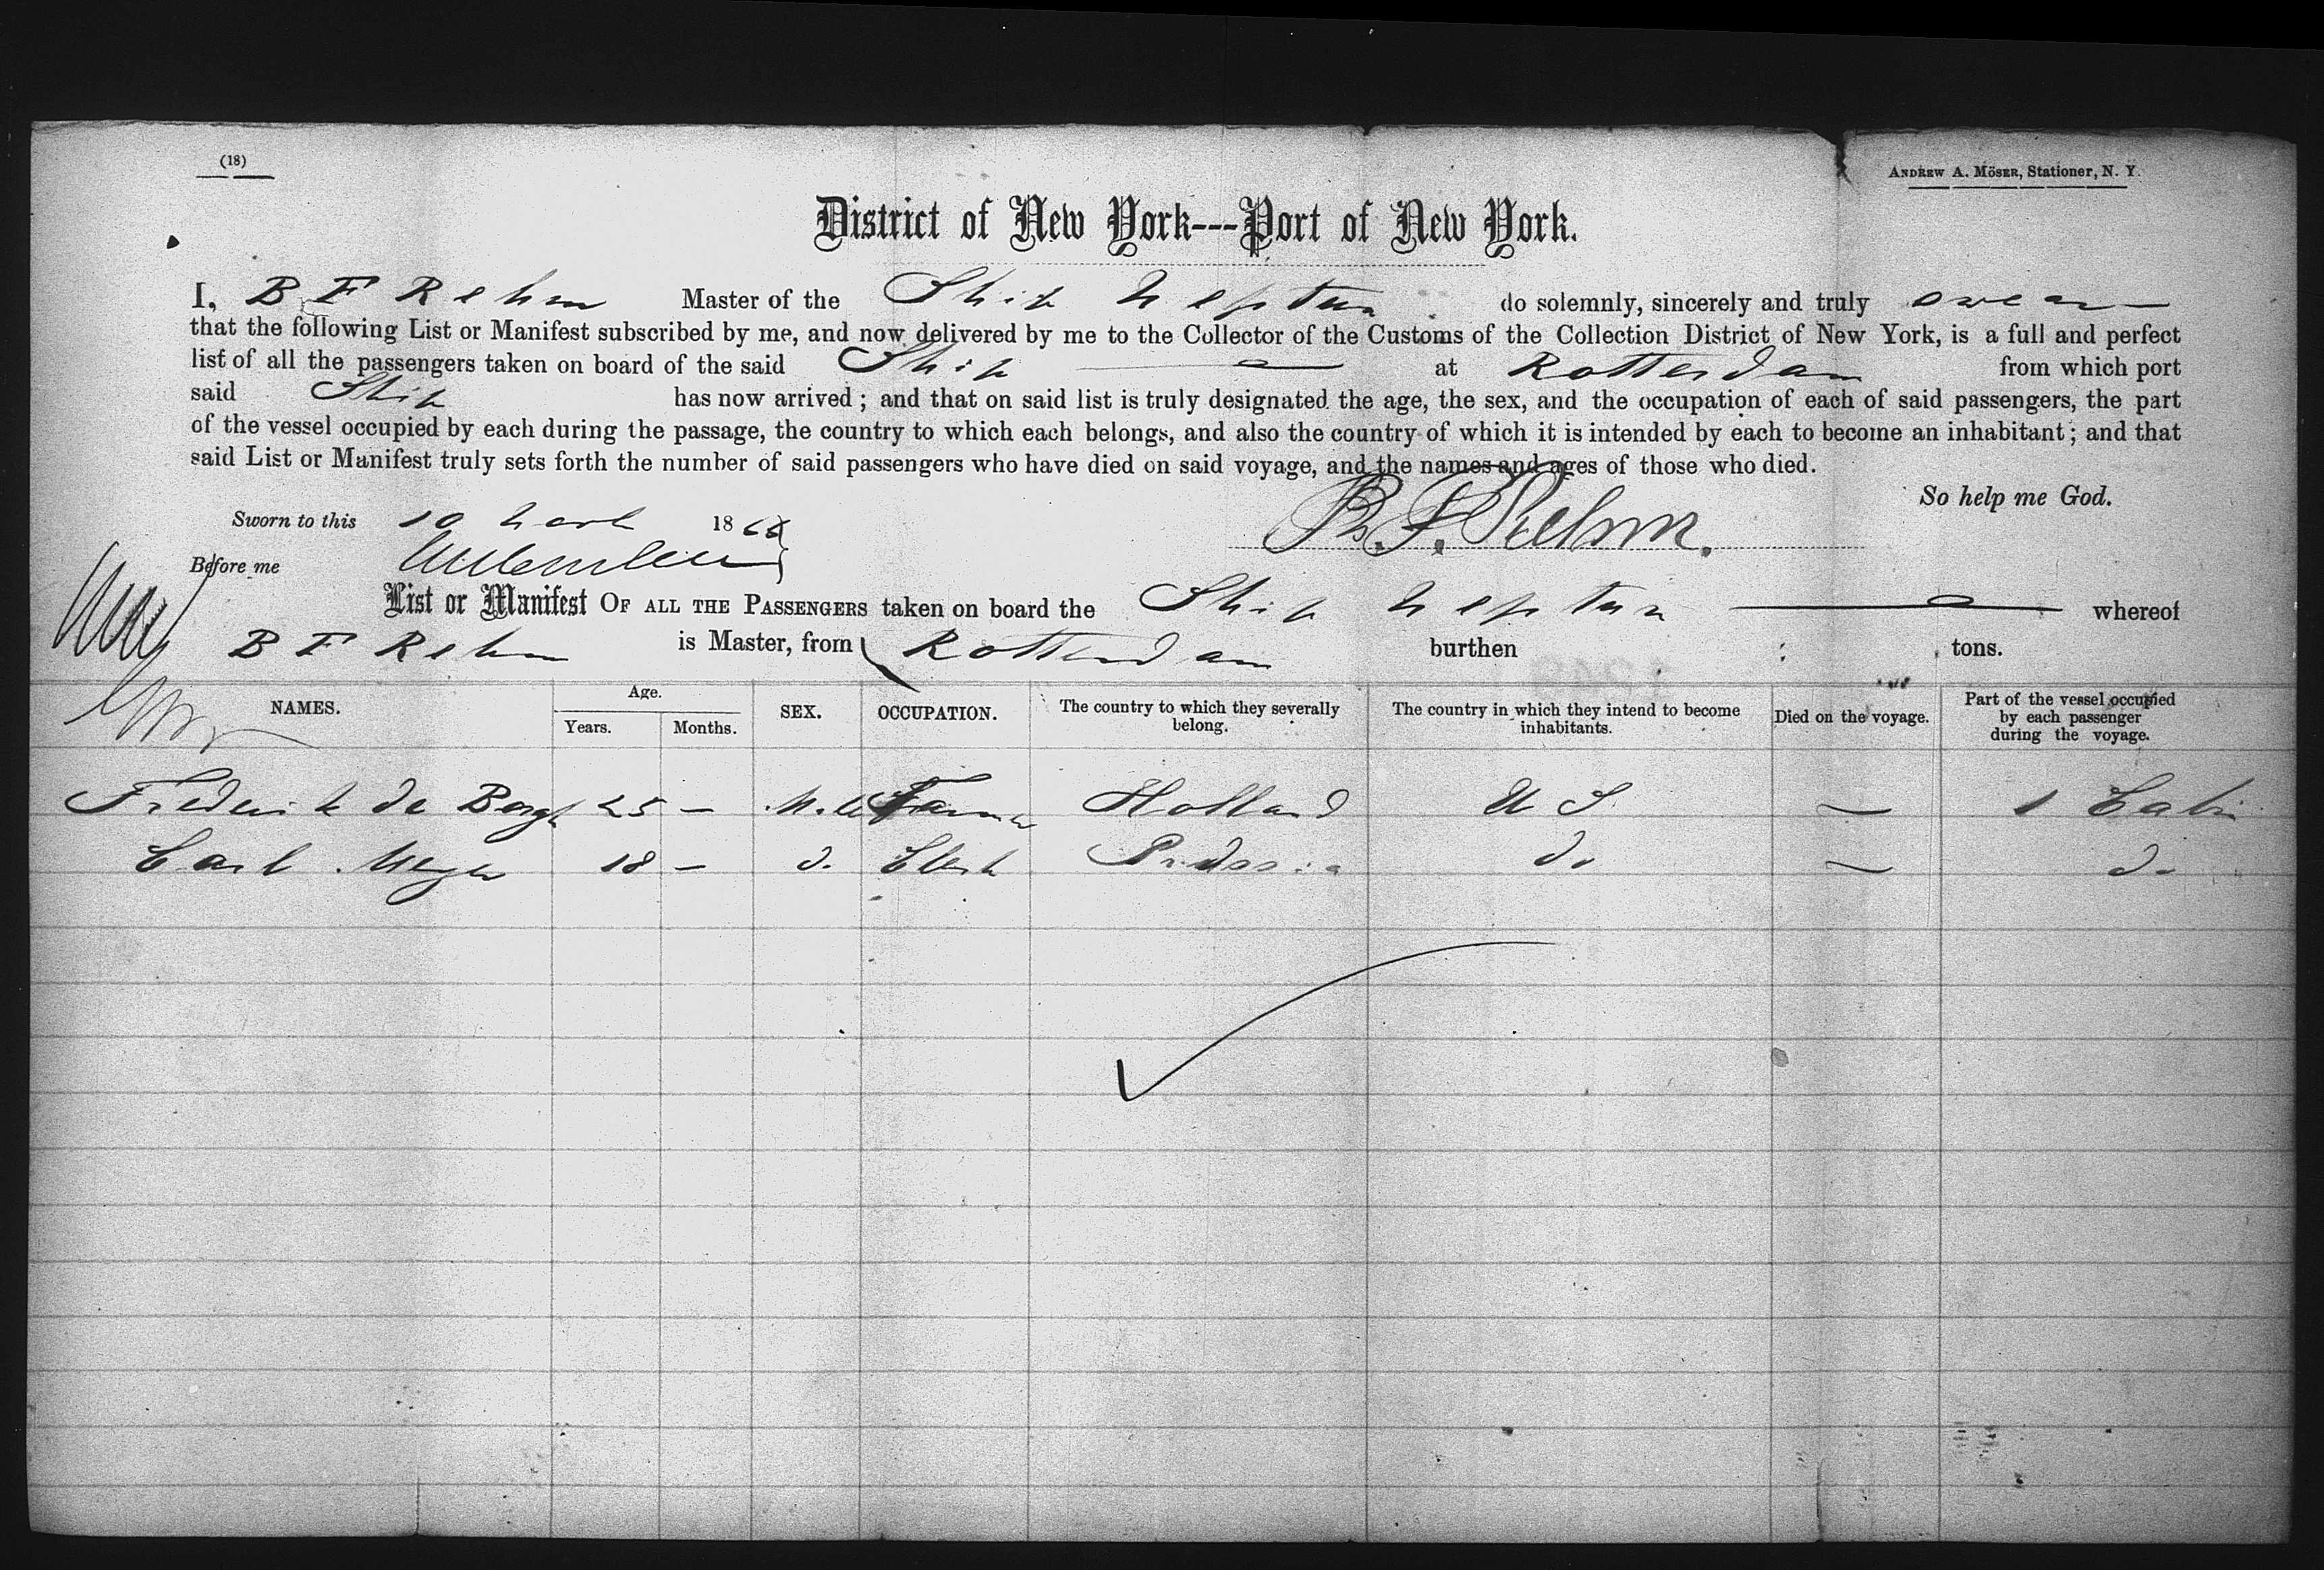 (18)
Andrew A. Möser, Stationer, N. Y.
District of New York---Port of New York.
I, B F Rehm Master of the Ship Neptun do solemnly, sincerely and truly swear
that the following List or Manifest subscribed by me, and now delivered by me to the Collector of the Customs of the Collection District of New York, is a full and perfect
list of all the passengers taken on board of the said Ship at Rotterdam from which port
said Ship has now arrived; and that on said list is truly designated the age, the sex, and the occupation of each of said passengers, the part
of the vessel occupied by each during the passage, the country to which each belongs, and also the country of which it is intended by each to become an inhabitant; and that
said List or Manifest truly sets forth the number of said passengers who have died on said voyage, and the names and ages of those who died.
So help me God.
Sworn to this 10 1866
B. F. Rehm.
Before me
List or Manifest OF ALL THE PASSENGERS taken on board the Ship Neptun whereof
B F Rehm is Master, from Rotterdam burthen tons.
NAMES. Age. Years. Months. SEX. OCCUPATION. The country to which they severally belong. The country in which they intend to become inhabitants. Died on the voyage. Part of the vessel occupied by each passenger during the voyage.
Frederik de Bergh 25 — Male Farmer Holland U S — 1 Cabin
Carl Meyer 18 — d. Clerk Prussia do — do